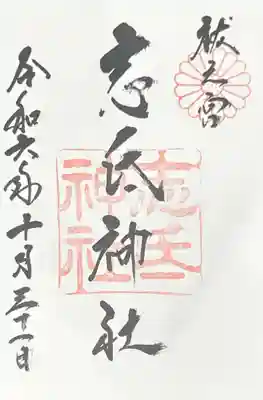 祓之宮
志氐神社
志氐神社
令和六年十月三十一日